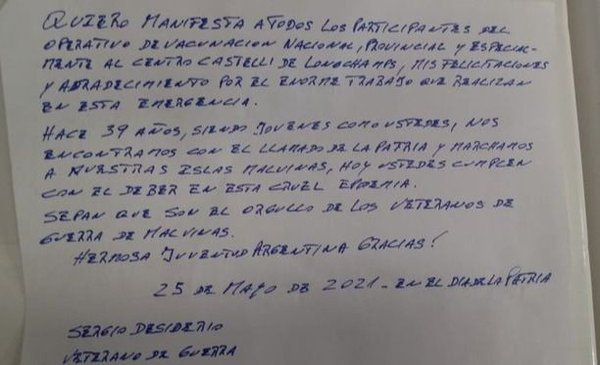 QUIERO MANIFESTA A TODOS LOS PARTICIPANTES DEL
OPERATIVO DE VACUNACION NACIONAL, PROVINCIAL Y ESPECIAL-
MENTE AL CENTRO CASTELLI DE LONGCHAMPS, MIS FELICITACIONES
Y AGRADECIMIENTO POR EL ENORME TRABAJO QUE REALIZAN
EN ESTA EMERGENCIA.
HACE 39 AÑOS, SIENDO JOVENES COMO USTEDES, NOS
ENCONTRAMOS CON EL LLAMADO DE LA PATRIA Y MARCHAMOS
A NUESTRAS ISLAS MALVINAS, HOY USTEDES CUMPLEN
CON EL DEBER EN ESTA CRUEL EPIDEMIA.
SEPAN QUE SON EL ORGULLO DE LOS VETERANOS DE
GUERRA DE MALVINAS.
HERMOSA JUVENTUD ARGENTINA GRACIAS!
25 DE MAYO DE 2021- EN EL DIA DE LA PATRIA
SERGIO DESIDERIO
VETERANO DE GUERRA